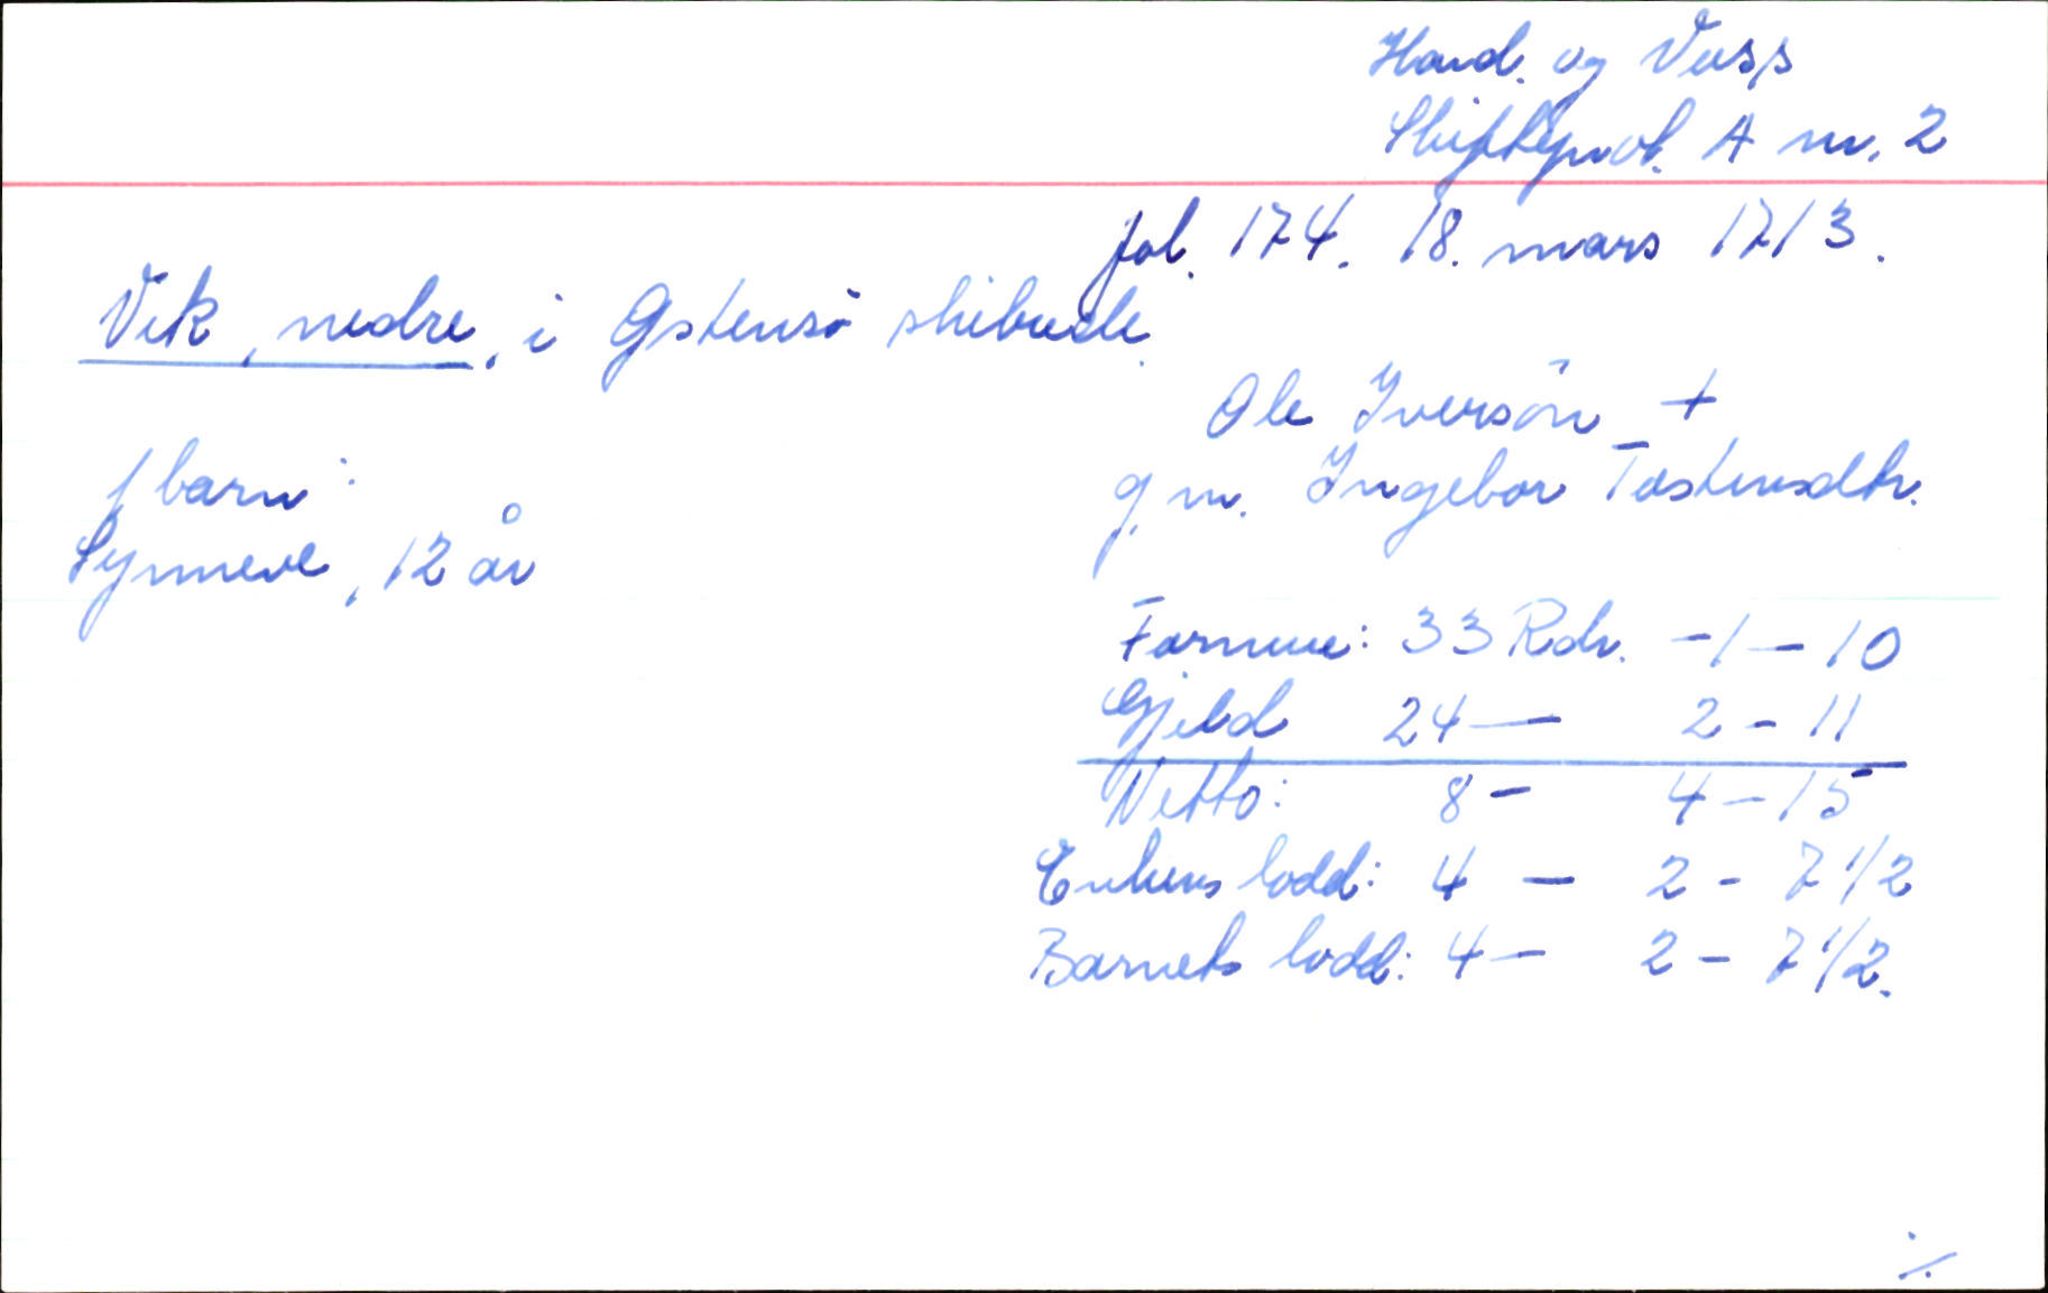 Hard. og Voss
Skifteprot. A nr. 2
fol. 174. 18. mars 1713.
Vik, nedre, i Gstensö skibrede.
Ole Iversön +
g.m. Ingebor Tostensdtr.
1 barn:
Synneve, 12 år
Formue: 33 Rdr. - 1 - 10
Gjeld 24 — 2 - 11
Netto: 8 - 4 - 15
Enkens lodd: 4 — 2 - 7 1/2
Barnets lodd: 4 - 2 - 7 1/2.
./.